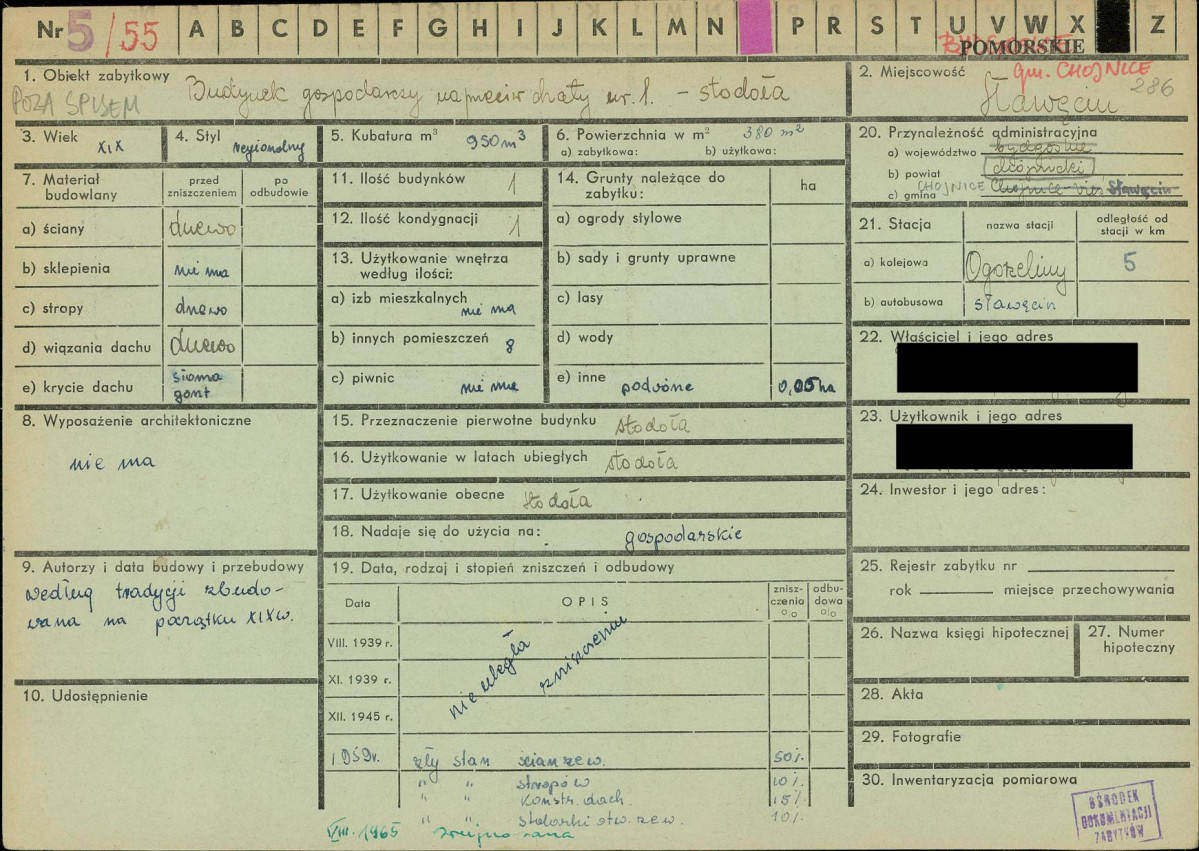 Nr 5/55 A B C D E F G H I J K L M N P R S T U V W X Z
POMORSKIE
1. Obiekt zabytkowy Budynek gospodarczy naprzeciw chaty nr. 1. - stodoła
POZA SPISEM
2. Miejscowość gm. CHOJNICE
Sławęcin 286
3. Wiek XIX
4. Styl regionalny
5. Kubatura m³ 950 m³
6. Powierzchnia w m² 380 m²
a) zabytkowa: b) użytkowa:
20. Przynależność administracyjna
a) województwo bydgoskie
b) powiat chojnicki
c) gmina CHOJNICE Chojnice-wieś Sławęcin
7. Materiał budowlany
przed zniszczeniem
po odbudowie
a) ściany drewo
b) sklepienia nie ma
c) stropy drewo
d) wiązania dachu drewo
e) krycie dachu słoma
gont
11. Ilość budynków 1
12. Ilość kondygnacji 1
13. Użytkowanie wnętrza
według ilości:
a) izb mieszkalnych nie ma
b) innych pomieszczeń 8
c) piwnic nie ma
14. Grunty należące do
zabytku: ha
a) ogrody stylowe
b) sady i grunty uprawne
c) lasy
d) wody
e) inne podwórze 0,05 ha
21. Stacja
nazwa stacji
odległość od
stacji w km
a) kolejowa Ogorzeliny 5
b) autobusowa Sławęcin
22. Właściciel i jego adres
23. Użytkownik i jego adres
24. Inwestor i jego adres:
8. Wyposażenie architektoniczne
nie ma
15. Przeznaczenie pierwotne budynku stodoła
16. Użytkowanie w latach ubiegłych stodoła
17. Użytkowanie obecne stodoła
18. Nadaje się do użycia na: gospodarskie
9. Autorzy i data budowy i przebudowy
według tradycji zbudo-
wana na początku XIX w.
10. Udostępnienie
19. Data, rodzaj i stopień zniszczeń i odbudowy
Data
OPIS
znisz-
czenia
%
odbu-
dowa
%
VIII. 1939 r.
XI. 1939 r.
XII. 1945 r.
nie uległa
zniszczeniu
1959r. zły stan ścian zew. 50%
" " stropów 10%
" " konstr. dach. 15%
" " stolarki otw. zew. 10%
VIII. 1965 zrujnowana
25. Rejestr zabytku nr
rok miejsce przechowywania
26. Nazwa księgi hipotecznej
27. Numer
hipoteczny
28. Akta
29. Fotografie
30. Inwentaryzacja pomiarowa
OŚRODEK
DOKUMENTACJI
ZABYTKÓW